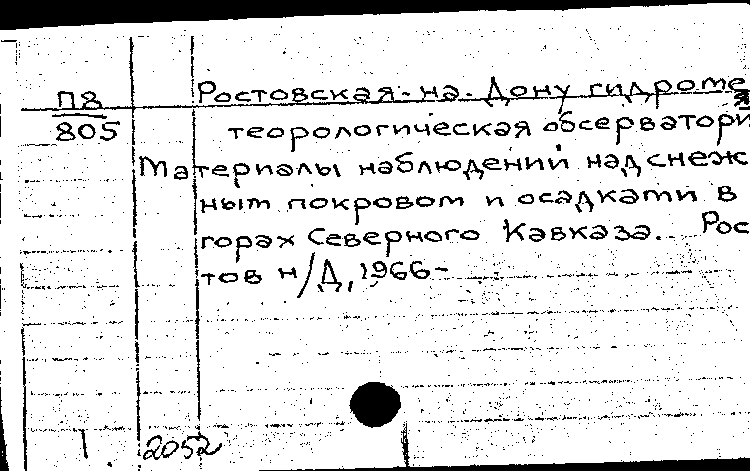 П8
805
Ростовская-на-Дону гидроме
теорологическая обсерватория
Материалы наблюдений над снеж
ным покровом и осадками в
горах Северного Кавказа. Рос
тов н/Д, 1966-
2052